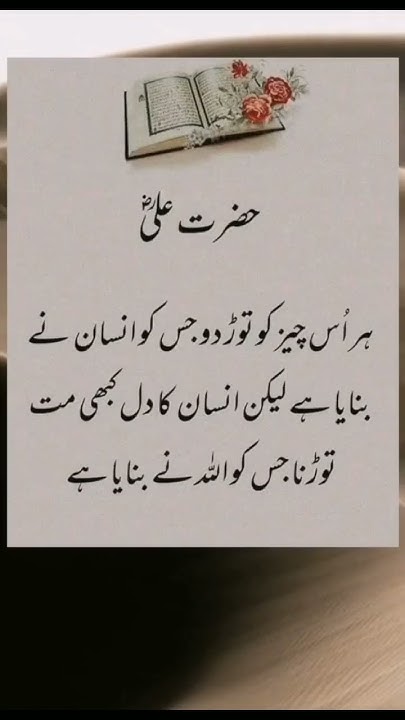 حضرت علیؓ
ہر اُس چیز کو توڑ دو جس کو انسان نے
بنایا ہے لیکن انسان کا دل کبھی مت
توڑنا جس کو اللہ نے بنایا ہے